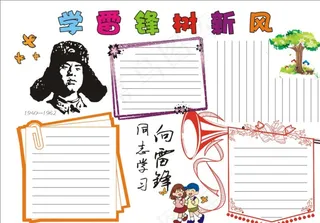 学雷锋树新风
1940-1962
向雷锋
同志学习